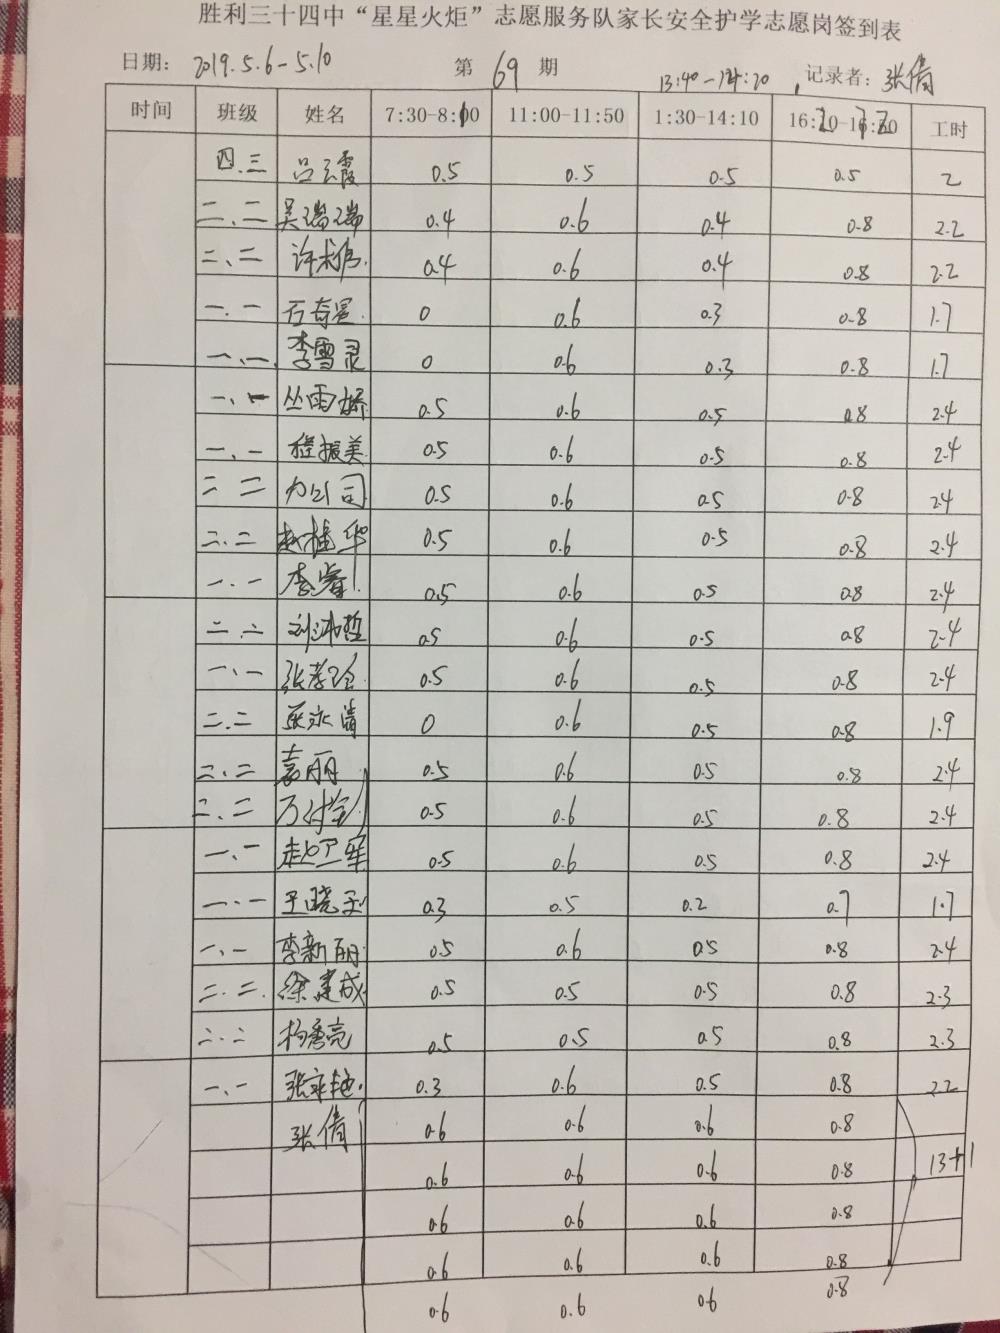 胜利三十四中“星星火炬”志愿服务队家长安全护学志愿岗签到表
日期: 2019.5.6-5.10 第 69 期 13:40-14:20 记录者: 张倩
时间 班级 姓名 7:30-8:10 11:00-11:50 1:30-14:10 工时
四.三 吕云霞 0.5 0.5 0.5 0.5 2
二、二 吴瑞瑞 0.4 0.6 0.4 0.8 2.2
二、二 0.4 0.6 0.4 0.8 2.2
一.一 石奇星 0 0.6 0.3 0.8 1.7
一、一 李雪灵 0 0.6 0.3 0.8 1.7
一、一 丛雨娇 0.5 0.6 0.5 0.8 2.4
一、一 程振美 0.5 0.6 0.5 0.8 2.4
二 二 0.5 0.6 0.5 0.8 2.4
二、二 赵桂华 0.5 0.6 0.5 0.8 2.4
一、一 0.5 0.6 0.5 0.8 2.4
二、二 0.5 0.6 0.5 0.8 2.4
一、一 张孝玲 0.5 0.6 0.5 0.8 2.4
二.二 0 0.6 0.5 0.8 1.9
二、二 袁丽 0.5 0.6 0.5 0.8 2.4
二、二 0.5 0.6 0.5 0.8 2.4
一、一 赵卫军 0.5 0.6 0.5 0.8 2.4
一、一 0.3 0.5 0.2 0.7 1.7
一、一 李新丽 0.5 0.6 0.5 0.8 2.4
二.二 徐建成 0.5 0.5 0.5 0.8 2.3
二.二 杨秀亮 0.5 0.5 0.5 0.8 2.3
一、一 0.3 0.6 0.5 0.8 2.2
张倩 0.6 0.6 0.6 0.8
0.6 0.6 0.6 0.8 13+1
0.6 0.6 0.6 0.8
0.6 0.6 0.6 0.8
0.6 0.6 0.6 0.8